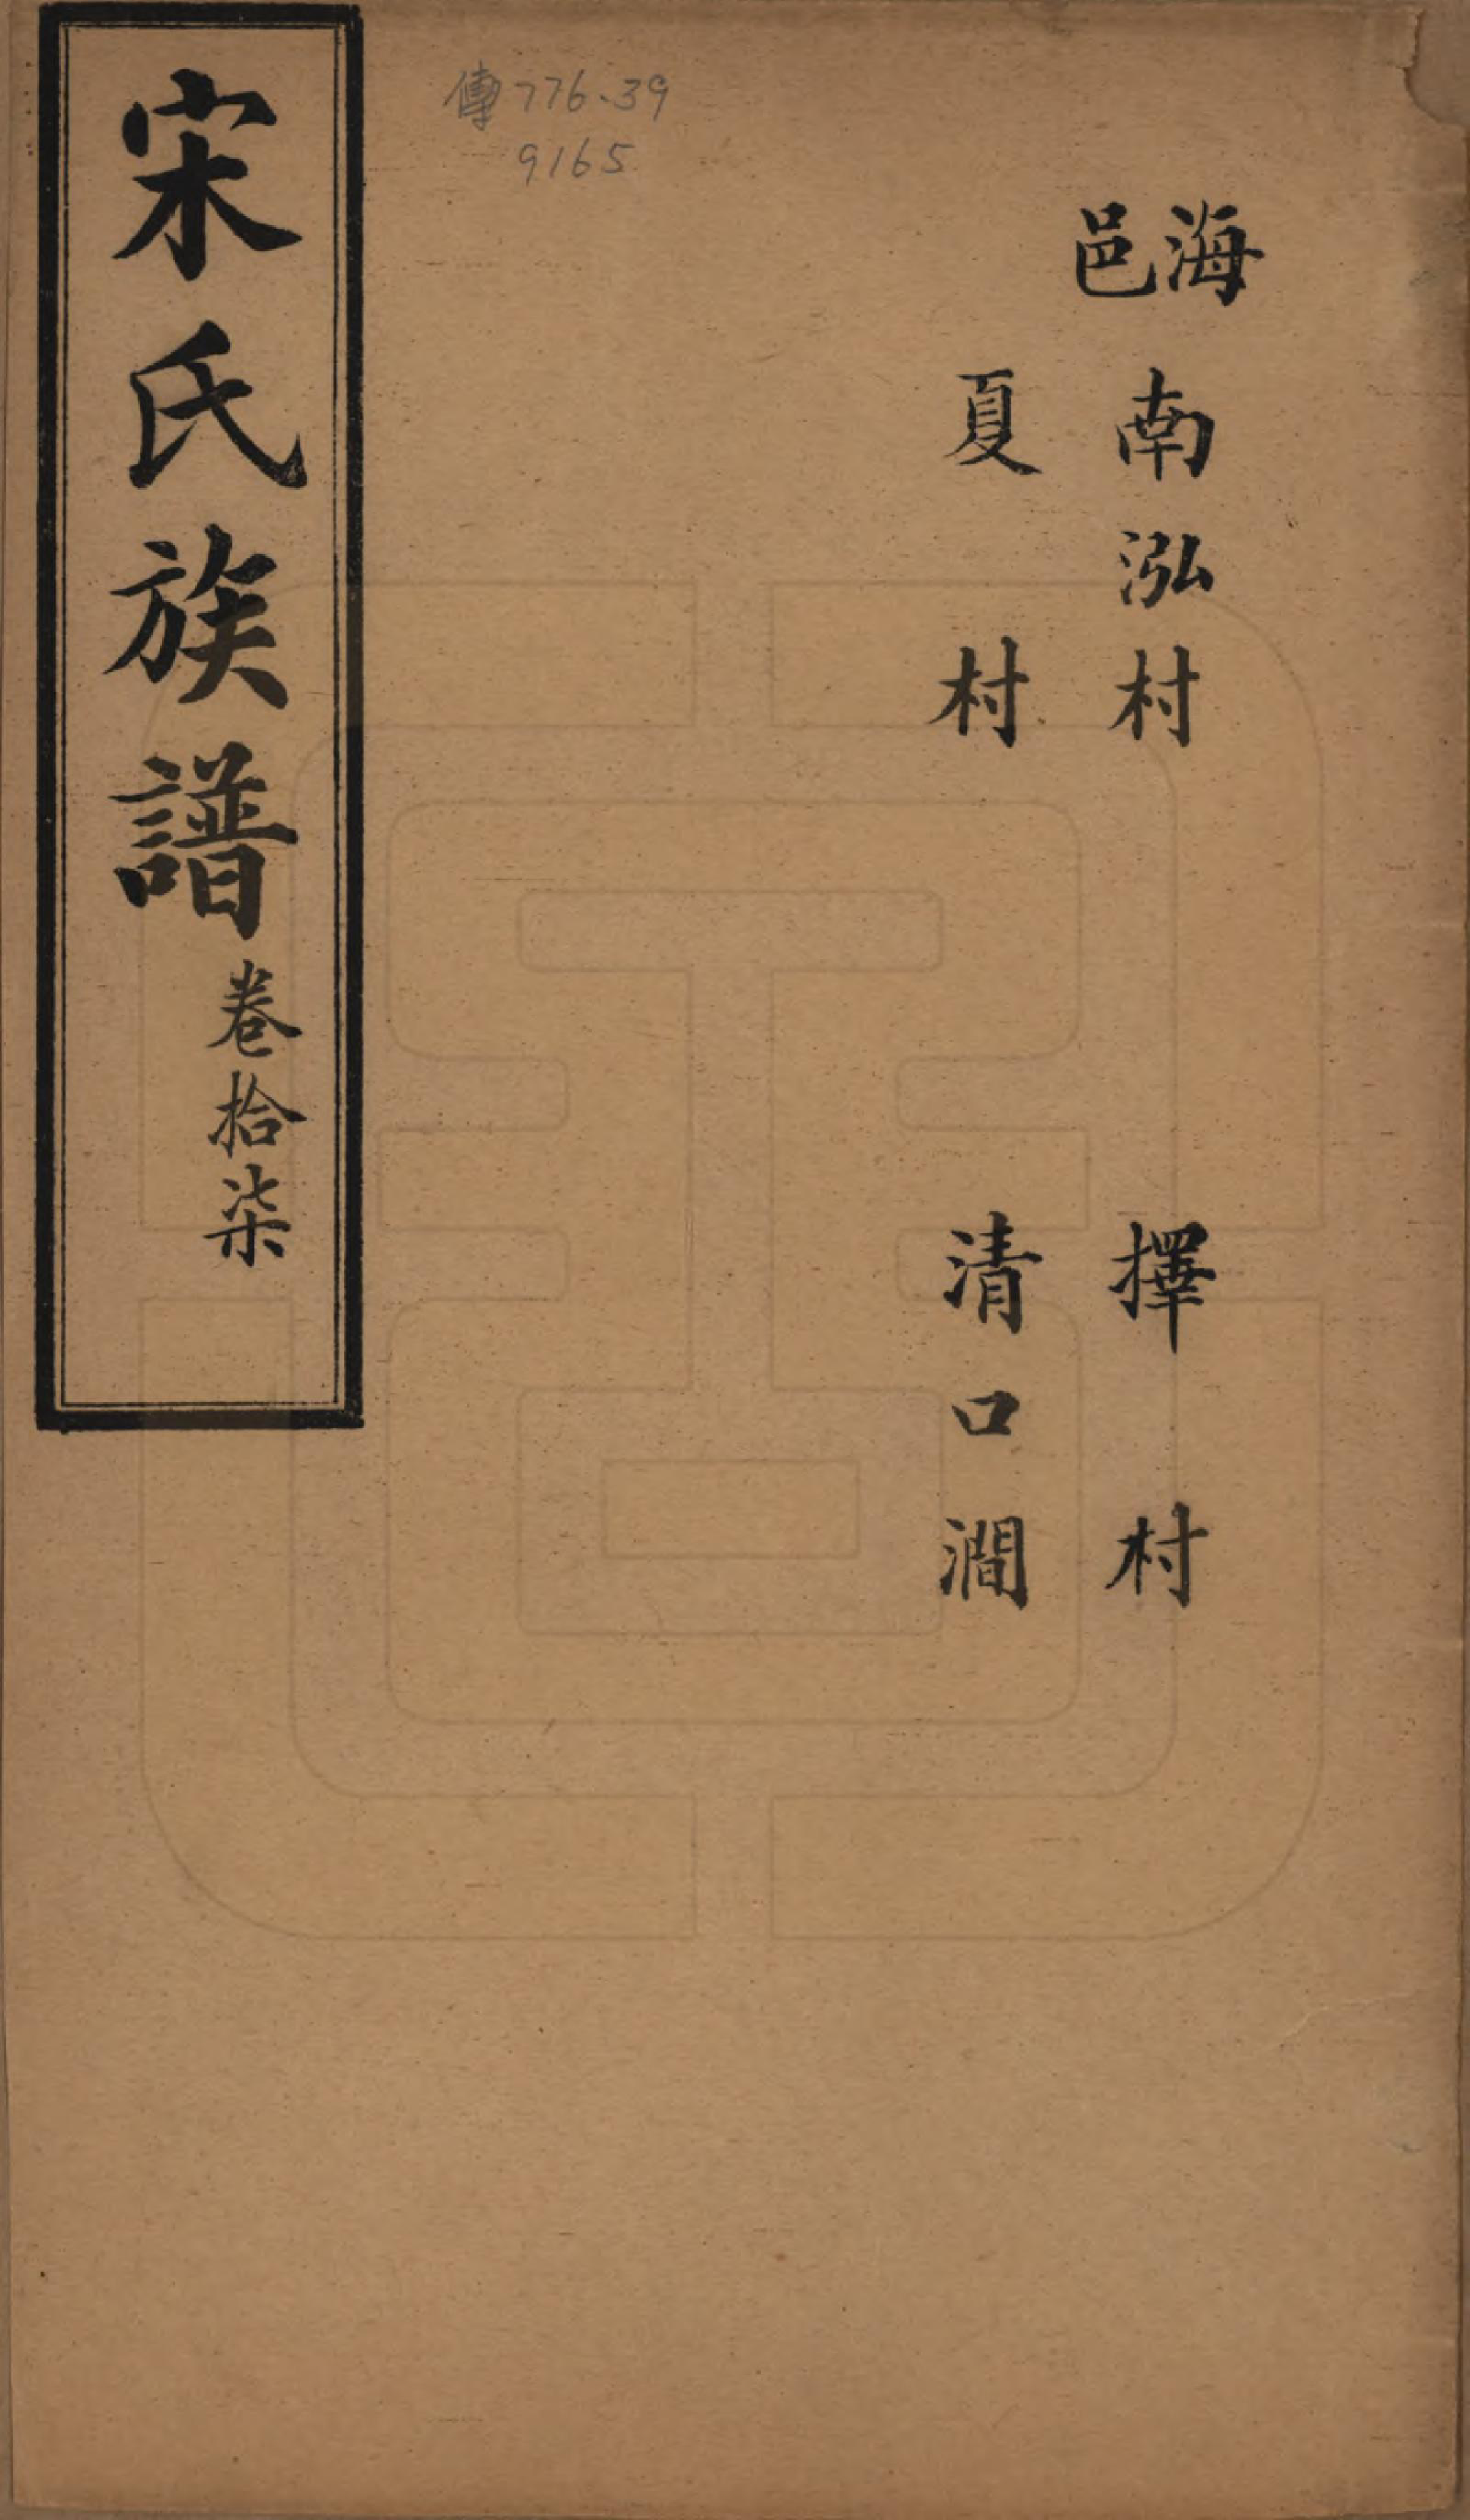 海邑
南泓村　擇村
夏村　清口澗
傳776.39
9165
宋氏族譜
卷拾柒